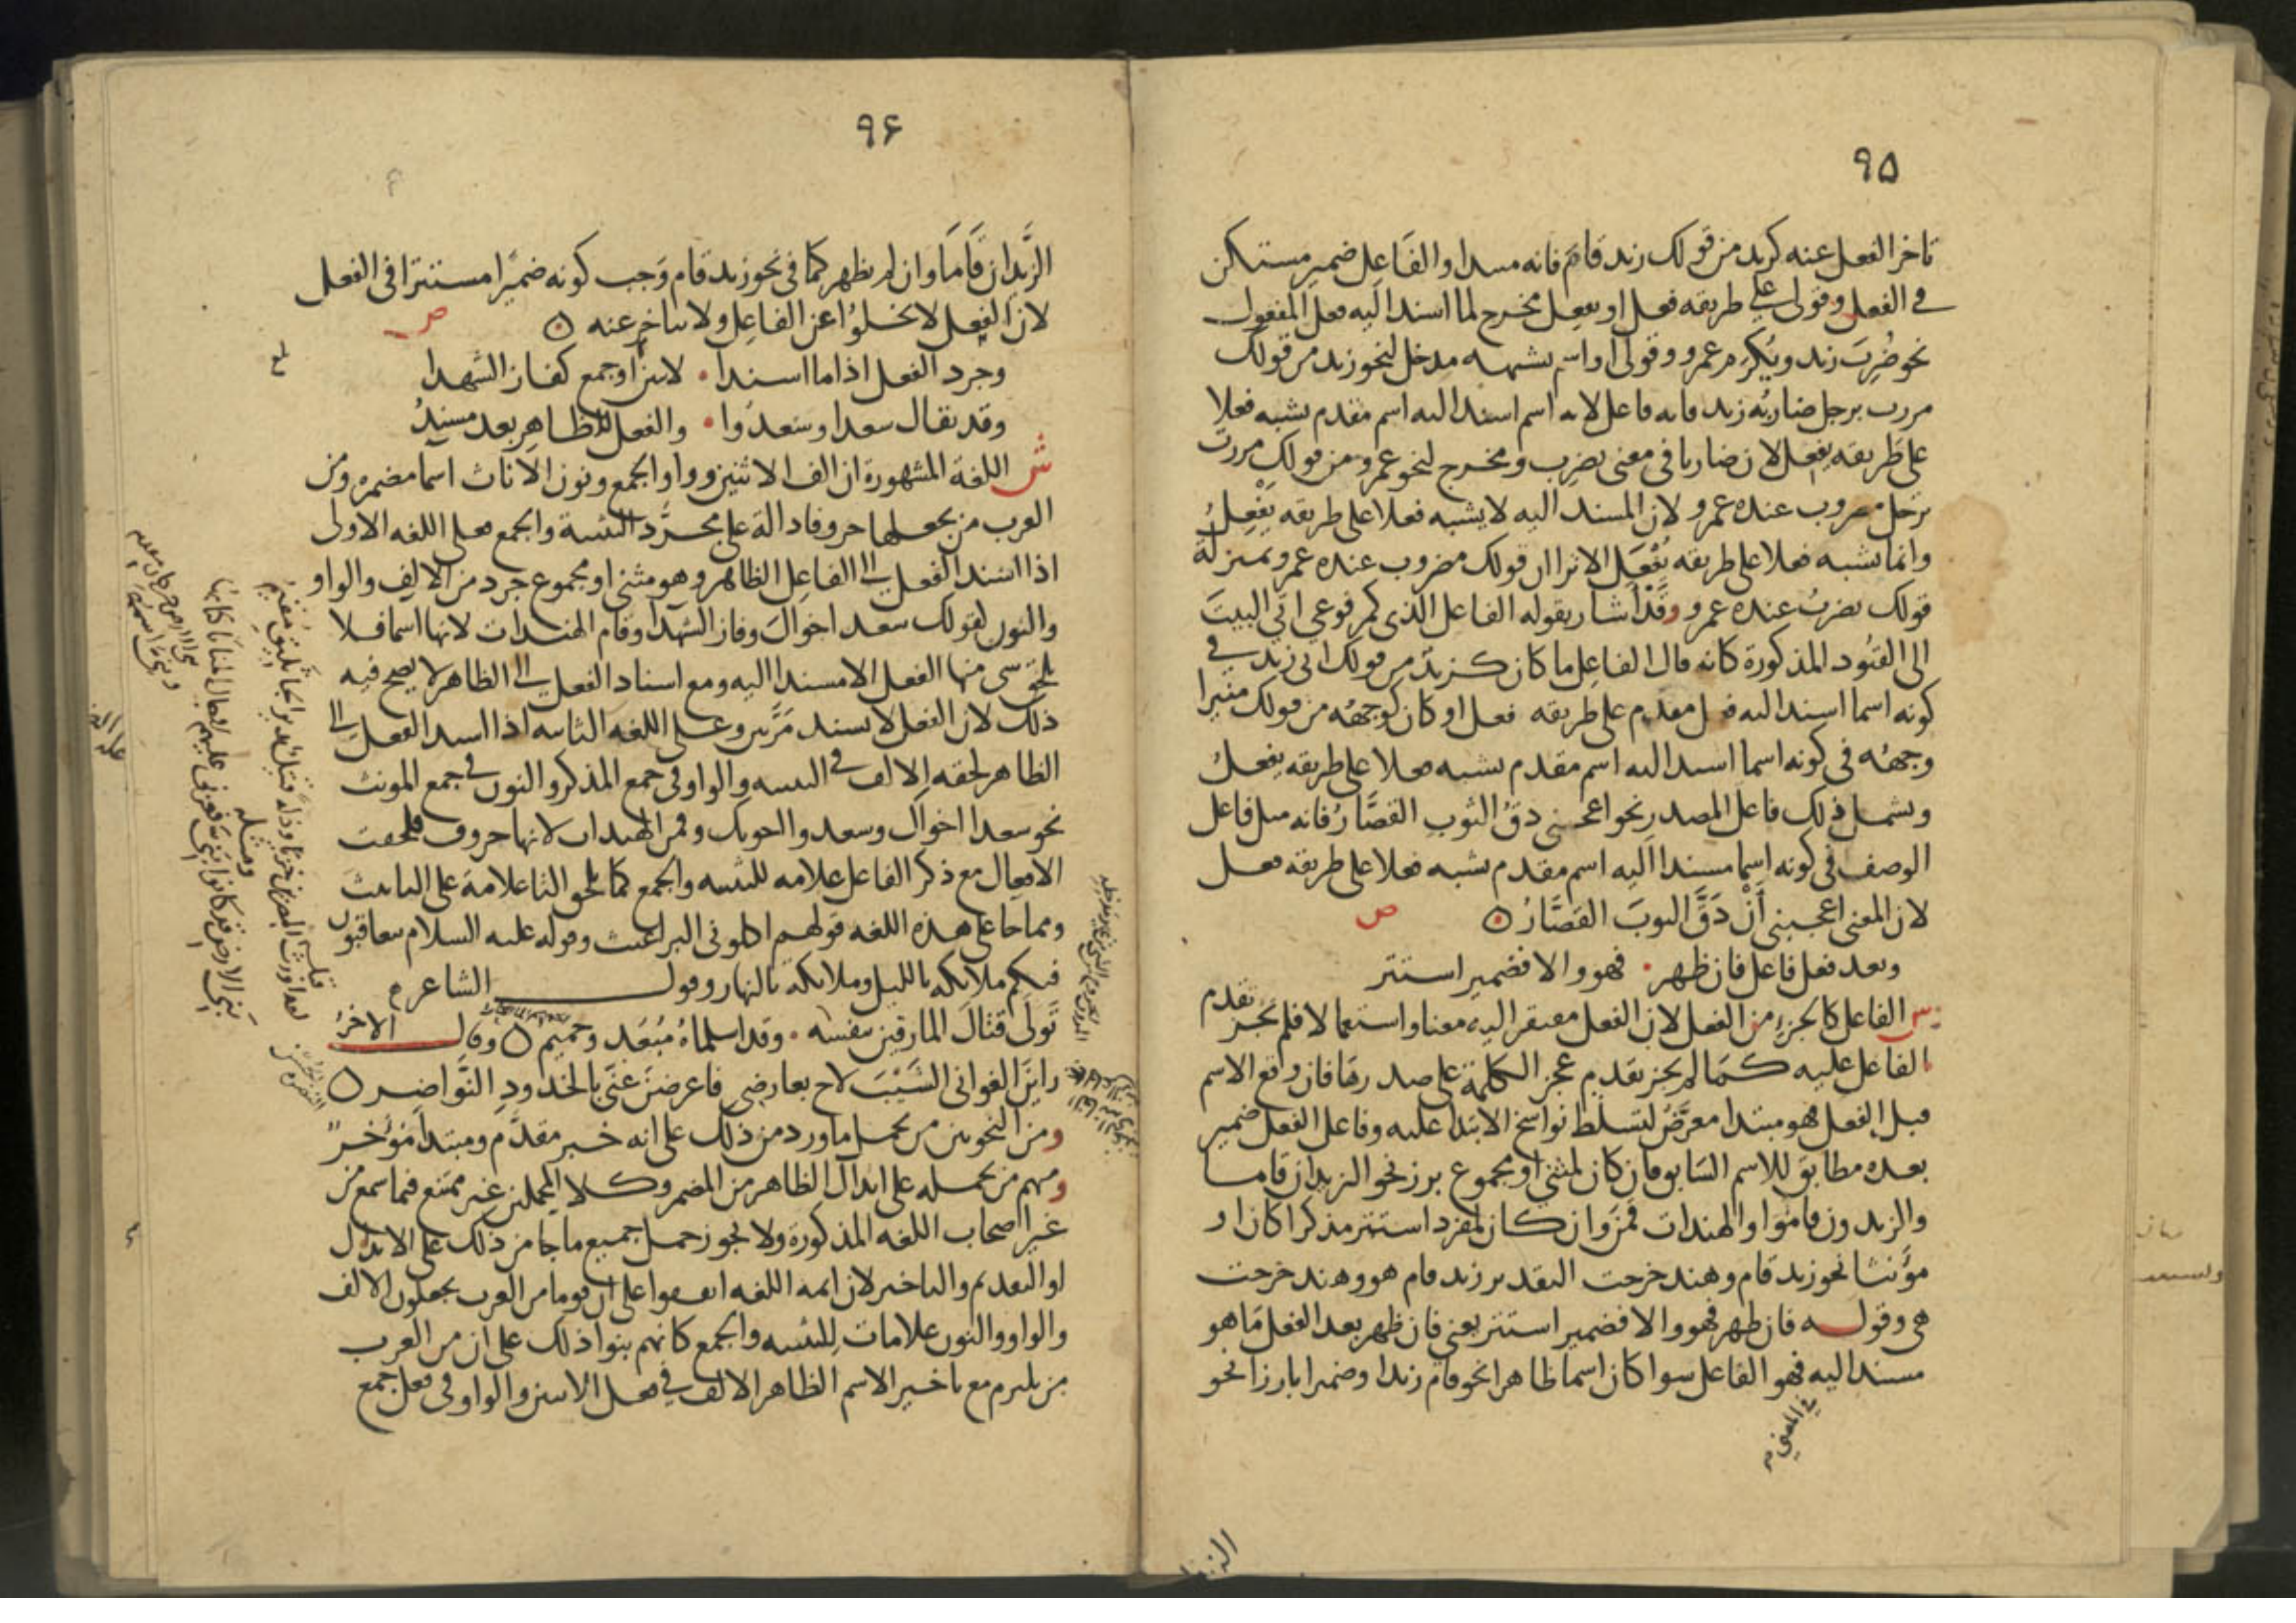 ٩٥
تاخر الفعل عنه كزيد من قولك زيد قام فانه مبتدا والفاعل ضمير مستكن
في الفعل وقولي على طريقه فعل او يفعل مخرج لما اسند اليه فعل المفعول
نحو ضُرِبَ زيد ويُكْرَم عمرو وقولي او اسم يشبهه مدخل لنحو زيد من قولك
مررت برجل ضاربُه زيد فانه فاعل لانه اسم اسند اليه اسم مقدم يشبه فعلا
على طريقه يفعل لان ضاربا في معنى يضرب ومخرج لنحو عمرو من قولك مررت
برجل مضروب عنده عمرو لان المسند اليه لا يشبه فعلا على طريقه يَفْعِلُ
وانما يشبه فعلا على طريقه يُفْعَل الا ترا ان قولك مضروب عنده عمرو بمنزلة
قولك يضرب عنده عمرو وقد اشار بقوله الفاعل الذي كمرفوعي اتي البيتَ
الى القيود المذكورة كانه قال الفاعل ما كان كزيد من قولك اتى زيد في
كونه اسما اسند اليه فعل مقدم على طريقه فعل او كان كوجهه من قولك منيرا
وجهه في كونه اسما اسند اليه اسم مقدم يشبه فعلا على طريقه يفعل
ويشمل ذلك فاعل المصدر نحو اعجبني دقُ الثوبِ القصَّارُ فانه مثل فاعل
الوصف في كونه اسما مسندا اليه اسم مقدم يشبه فعلا على طريقه فعل
لان المعنى اعجبني أَنْ دَقَّ الثوبَ القصَّارُ ص
وبعد فعل فاعل فان ظهر فهو والا فضمير استتر
ش الفاعل كالجزء من الفعل لان الفعل مفتقر اليه معنا واستعمالا فلم يجز تقدم
الفاعل عليه كما لم يجز تقديم عجز الكلمة على صدرها فان وقع الاسم
قبل الفعل فهو مبتدا معرَّضٌ لتسلط نواسخ الابتدا عليه وفاعل الفعل ضمير
بعده مطابق للاسم السابق فان كان لمثنى او مجموع برز نحو الزيدان قاما
والزيدون قاموا والهندات قمن وان كان لمفرد استتر مذكرا كان او
مؤنثا نحو زيد قام وهند خرجت التقدير زيد قام هو وهند خرجت
هى وقوله فان ظهر فهو والا فضمير استتر يعني فان ظهر بعد الفعل ما هو
مسند اليه فهو الفاعل سوا كان اسما ظاهرا نحو قام زيد او ضميرا بارزا نحو
في المعنى
٩۶
الزَّيدان قَامَا وان لم يظهر كما في نحو زيد قام وَجب كونه ضميرًا مستترا في الفعل
لان الفعل لا يخلوا عن الفاعل ولا يتاخر عنه ص
وجرد الفعل اذا ما اسندا لاثنين او جمع كفاز الشهدا
وقد يقال سعدا وسَعدُوا والفعل للظاهر بعد مسندُ
ش اللغة المشهورة ان الف الاثنين وواو الجمع ونون الاناث اسما مضمره ومن
العرب من يجعلها حروفا دالة على مجرَّد التثنية والجمع فعلى اللغه الاولى
اذا اسند الفعل الى الفاعل الظاهر وهو مثنى او مجموع جرد من الالف والواو
والنون لقولك سعد اخواك وفاز الشهدا وقام الهندات لانها اسما فلا
يلحق شى منها الفعل الا مسندا اليه ومع اسناد الفعل الى الظاهر لا يصح فيه
ذلك لان الفعل لا يسند مَرَّتين وعلى اللغه الثانيه اذا اسند الفعل الى
الظاهر لحقه الالف في التثنيه والواو في جمع المذكر والنون في جمع المونث
نحو سعدا اخواك وسعدوا اخوتك وقمن الهندات لانها حروف فلحقت
الافعال مع ذكر الفاعل علامه للتثنيه والجمع كما تلحق التا علامة على التانيث
ومما جا على هذه اللغه قولهم اكلوني البراغيث وقوله عليه السلام يتعاقبون
فيكم ملائكه بالليل وملائكه بالنهار وقول الشاعر
تَولَى قتالَ المارقين بنفسه وقد اسلماهُ مُبْعَد وحميم وقال الاخرُ
رايْنَ الغواني الشَيْبَ لاح بعارضي فاعرضنَ عنّي بالخدودِ النَّواضر
ومن النحويين من يحمل ما ورد من ذلك على انه خبر مقدَّم ومبتدأ مؤخر
ومنهم من يحمله على ابدال الظاهر من المضمر وكلا المحملين غير ممتنع فيما سمع من
غير اصحاب اللغه المذكورة ولا يجوز حمل جميع ما جا من ذلك على الابدال
او التقديم والتاخير لان ايمه اللغه اتفقوا على ان قوما من العرب يجعلون الالف
والواو والنون علامات للتثنيه والجمع كانهم بنوا ذلك على ان من العرب
من يلتزم مع تاخير الاسم الظاهر الالف في فعل الاثنين والواو في فعل جمع